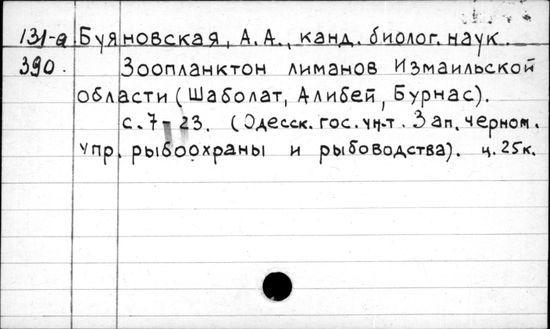 131-а Буяновская, А.А., канд. биолог. наук.
390. Зоопланктон лиманов Измаильской
области (Шаболат, Алибей, Бурнас).
с. 7-23. (Одесск. гос. ун-т. Зап. черном.
упр. рыбоохраны и рыбоводства). ц. 25к.